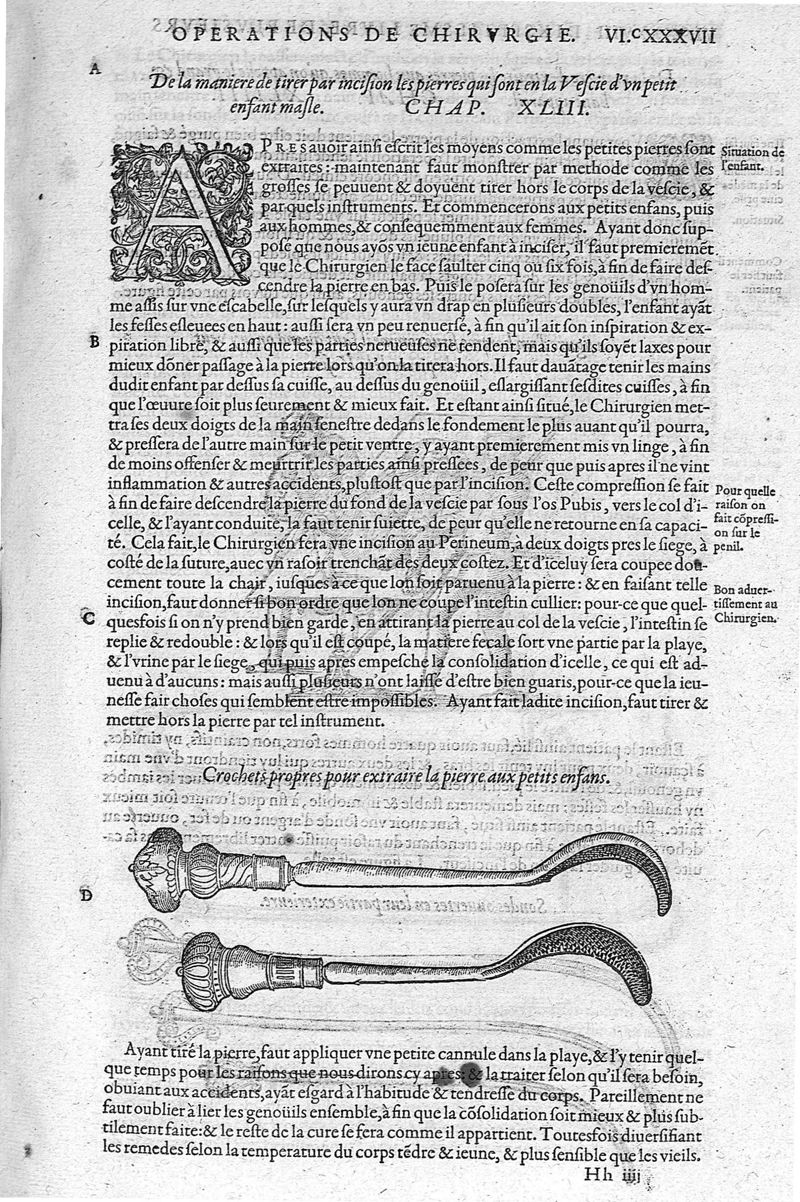 OPERATIONS DE CHIRVRGIE. VI.ᶜXXXVII
A
De la maniere de tirer par incision les pierres qui sont en la Vescie d'vn petit
enfant masle. CHAP. XLIII.
APRES auoir ainsi escrit les moyens comme les petites pierres sont
extraites: maintenant faut monstrer par methode comme les
grosses se peuuent & doyuent tirer hors le corps de la vescie, &
par quels instruments. Et commencerons aux petits enfans, puis
aux hommes, & consequemment aux femmes. Ayant donc sup-
posé que nous ayõs vn ieune enfant à inciser, il faut premieremẽt
que le Chirurgien le face saulter cinq ou six fois, à fin de faire des-
cendre la pierre en bas. Puis le posera sur les genoüils d'vn hom-
me assis sur vne escabelle, sur lesquels y aura vn drap en plusieurs doubles, l'enfant ayãt
les fesses esleuees en haut: aussi sera vn peu renuersé, à fin qu'il ait son inspiration & ex-
piration libre, & aussi que les parties nerueuses ne tendent, mais qu'ils soyẽt laxes pour
mieux dõner passage à la pierre lors qu'on la tirera hors. Il faut dauãtage tenir les mains
dudit enfant par dessus sa cuisse, au dessus du genoüil, eslargissant sesdites cuisses, à fin
que l'œuure soit plus seurement & mieux fait. Et estant ainsi situé, le Chirurgien met-
tra ses deux doigts de la main senestre dedans le fondement le plus auant qu'il pourra,
& pressera de l'autre main sur le petit ventre, y ayant premierement mis vn linge, à fin
de moins offenser & meurtrir les parties ainsi pressees, de peur que puis apres il ne vint
inflammation & autres accidents, plustost que par l'incision. Ceste compression se fait
à fin de faire descendre la pierre du fond de la vescie par sous l'os Pubis, vers le col d'i-
celle, & l'ayant conduite, la faut tenir suiette, de peur qu'elle ne retourne en sa capaci-
té. Cela fait, le Chirurgien fera vne incision au Perineum, à deux doigts pres le siege, à
costé de la suture, auec vn rasoir trenchãt des deux costez. Et d'iceluy sera coupee dou-
cement toute la chair, iusques à ce que lon soit paruenu à la pierre: & en faisant telle
incision, faut donner si bon ordre que lon ne coupe l'intestin cullier: pour-ce que quel-
quesfois si on n'y prend bien garde, en attirant la pierre au col de la vescie, l'intestin se
replie & redouble: & lors qu'il est coupé, la matiere fecale sort vne partie par la playe,
& l'vrine par le siege, qui puis apres empesche la consolidation d'icelle, ce qui est ad-
uenu à d'aucuns: mais aussi plusieurs n'ont laissé d'estre bien guaris, pour-ce que la ieu-
nesse fair choses qui semblent estre impossibles. Ayant fait ladite incision, faut tirer &
mettre hors la pierre par tel instrument.
Situation de
l'enfant.
B
Pour quelle
raison on
fait cõpressi-
on sur le
penil.
Bon aduer-
tissement au
Chirurgien.
C
Crochets propres pour extraire la pierre aux petits enfans.
D
Ayant tiré la pierre, faut appliquer vne petite cannule dans la playe, & l'y tenir quel-
que temps pour les raisons que nous dirons cy apres: & la traiter selon qu'il sera besoin,
obuiant aux accidents, ayãt esgard à l'habitude & tendresse du corps. Pareillement ne
faut oublier à lier les genoüils ensemble, à fin que la cõsolidation soit mieux & plus sub-
tilement faite: & le reste de la cure se fera comme il appartient. Toutesfois diuersifiant
les remedes selon la temperature du corps tẽdre & ieune, & plus sensible que les vieils.
Hh iiij